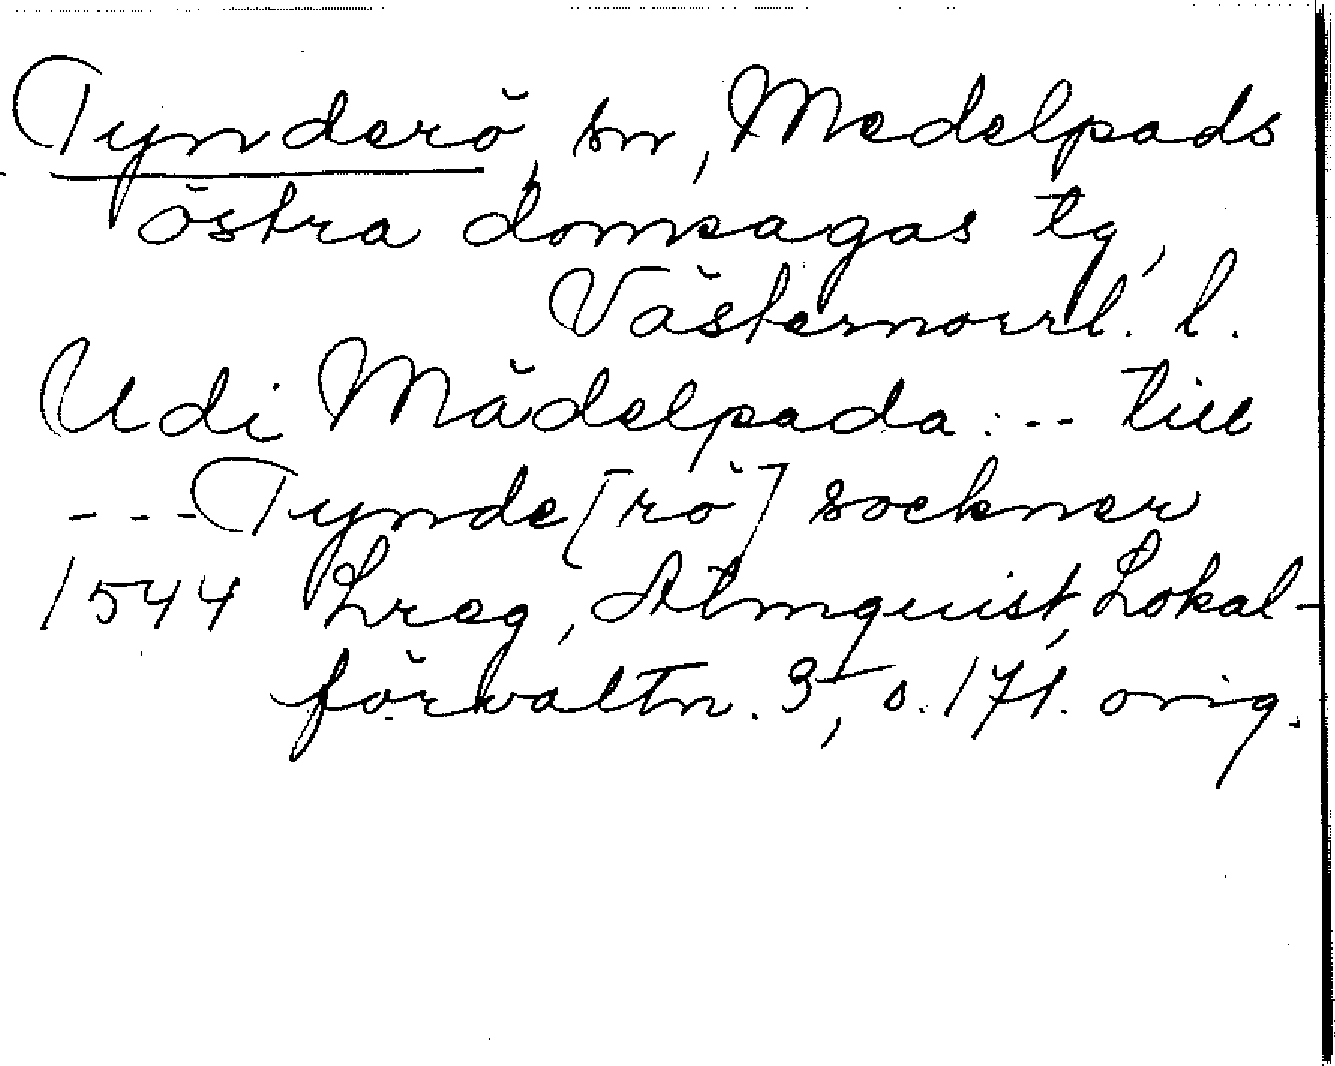 Tynderö, sn, Medelpads
östra domsagas tg,
Västernorrl. l.
Udi Mädelpada --- till
--- Tynde[rö] sockner
1544 Lreg, Almquist, Lokal-
förvaltn. 3, s. 171. orig.